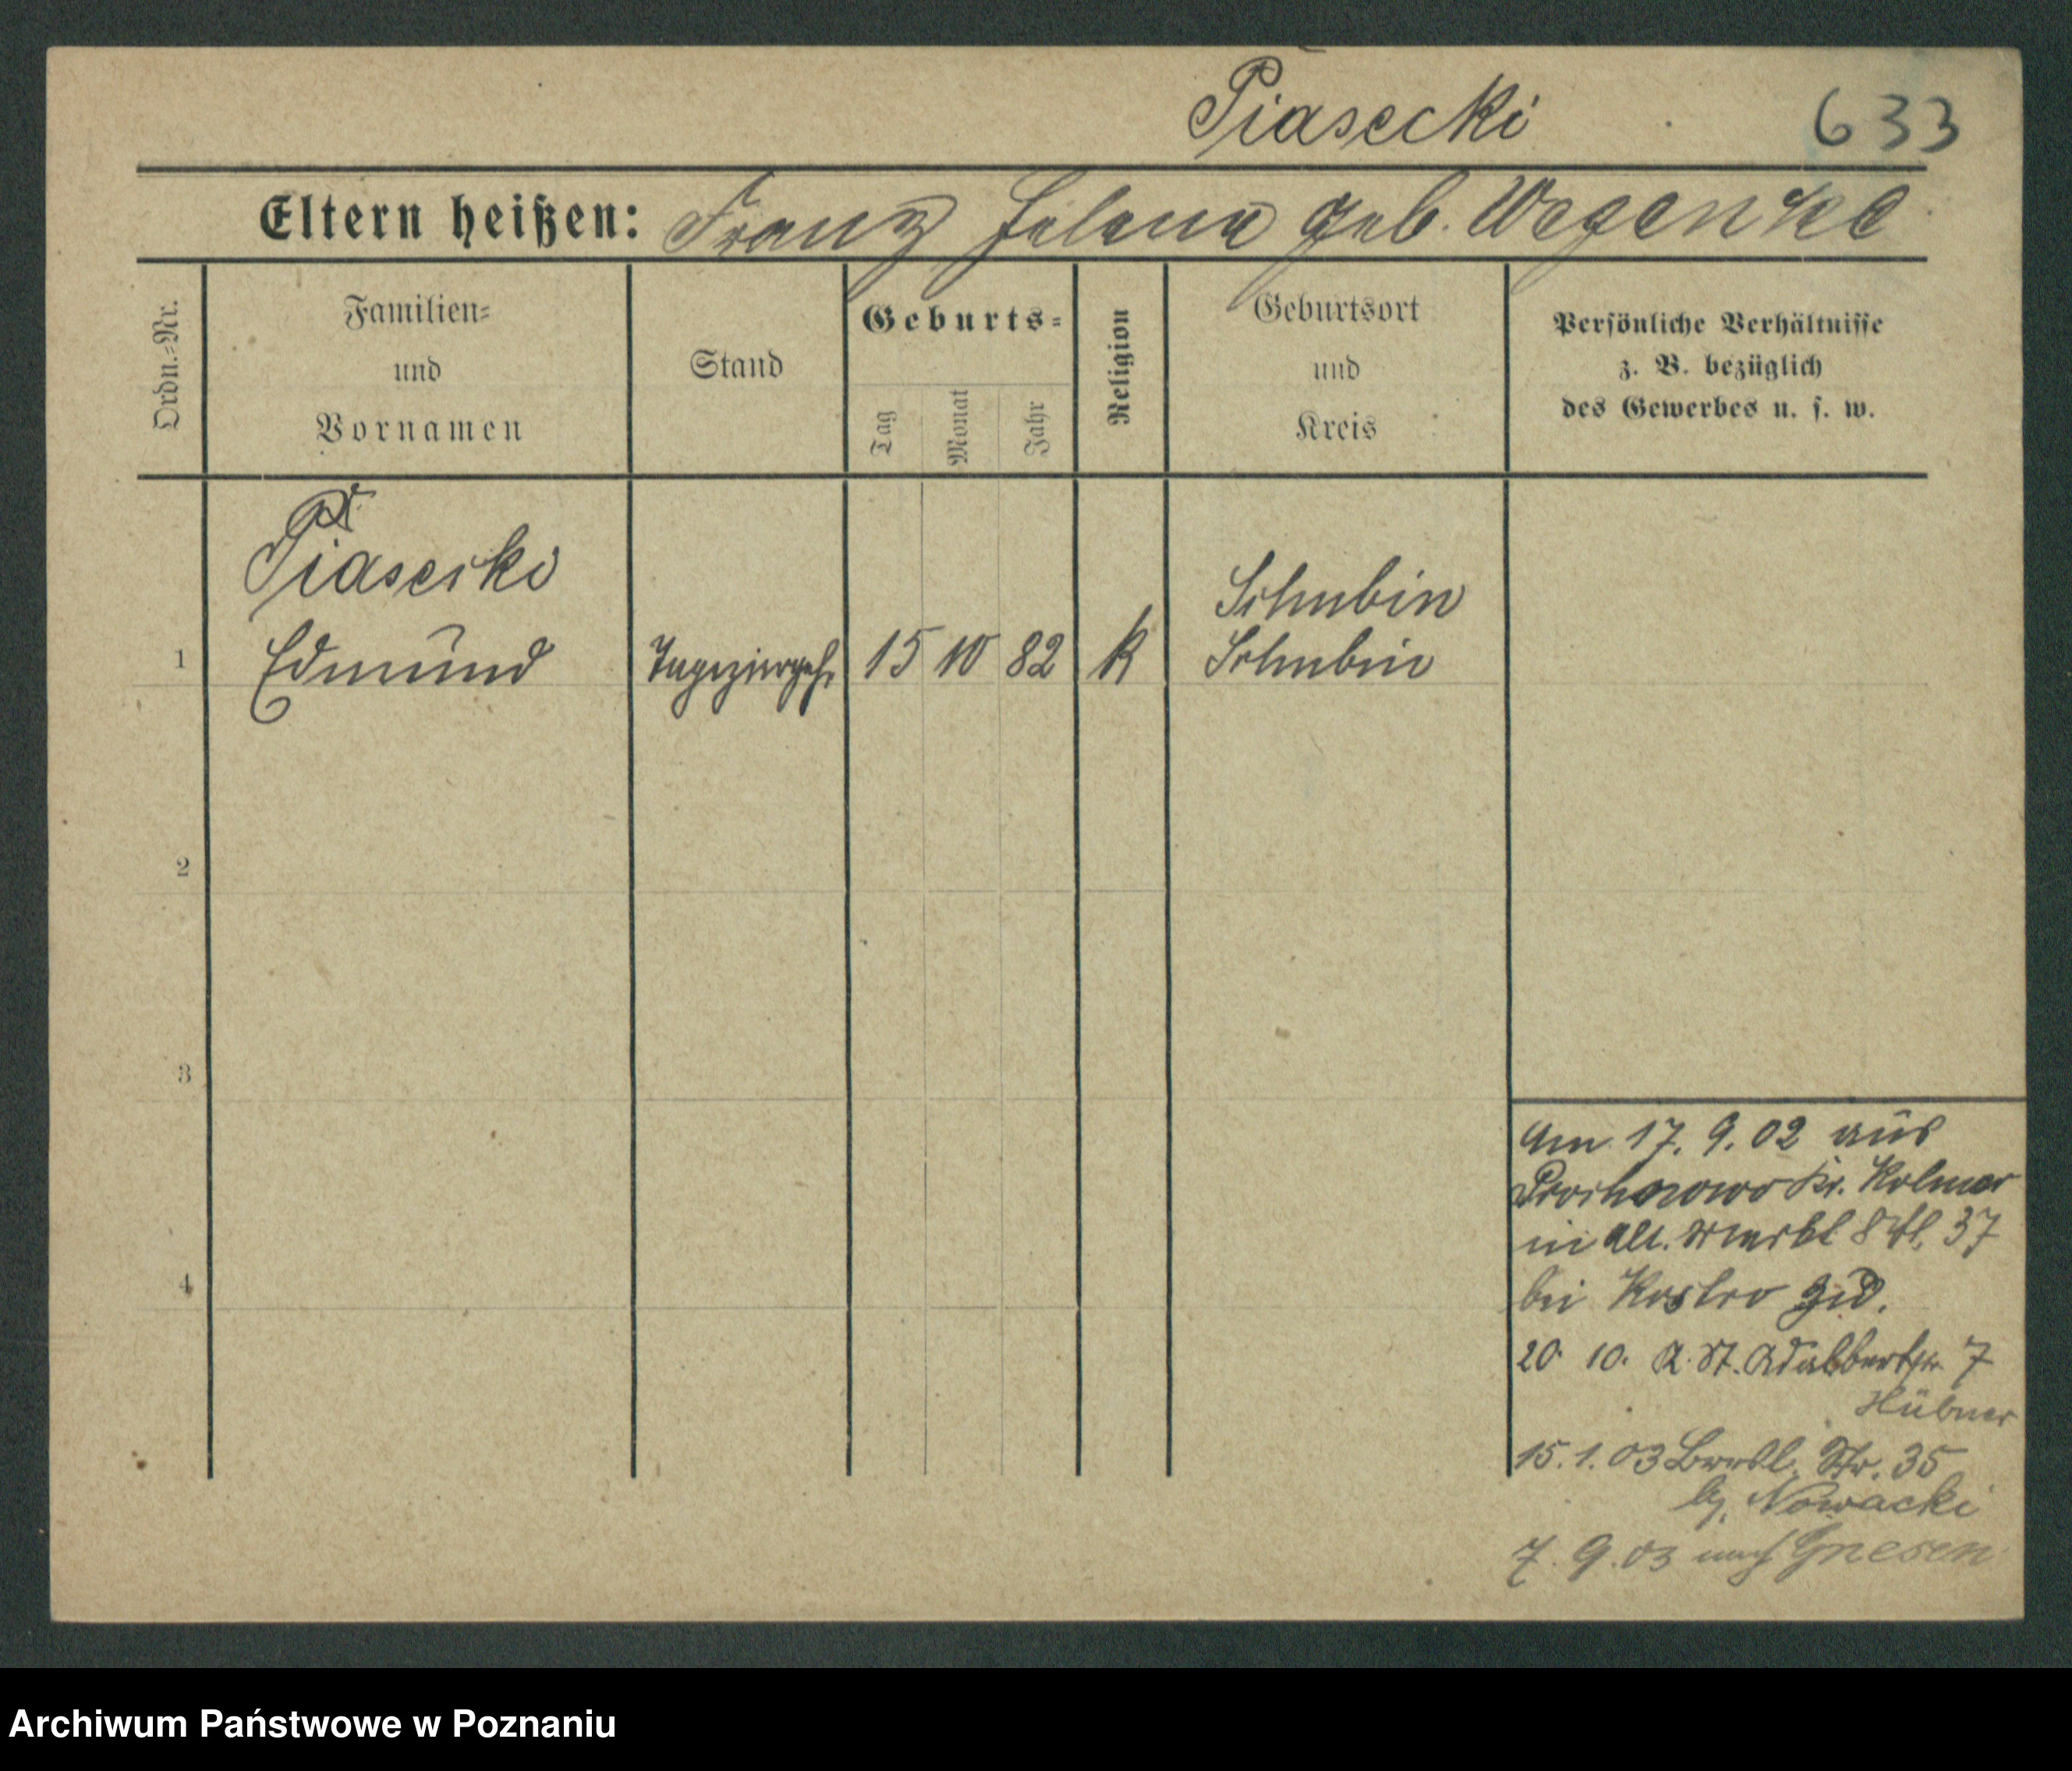 Piasecki 633
Eltern heißen: Franz Helena geb. Wegenke
Ordn.=Nr.
Familien=
und
Vornamen
Stand
Geburts=
Tag
Monat
Jahr
Religion
Geburtsort
und
Kreis
Persönliche Verhältnisse
z. B. bezüglich
des Gewerbes u. s. w.
Piasecki
Schubin
1 Edmund Tapeziergeh. 15 10 82 k Schubin
2
3
4
Am 17. 9. 02 aus
Kr. Kolmar
in Alt. Markt 37
bei
20. 10. St. Adalbertstr. 7
Hübner
15. 1. 03 Bresl. Str. 35
b/ Nowacki
7. 9. 03 nach Gnesen
Archiwum Państwowe w Poznaniu